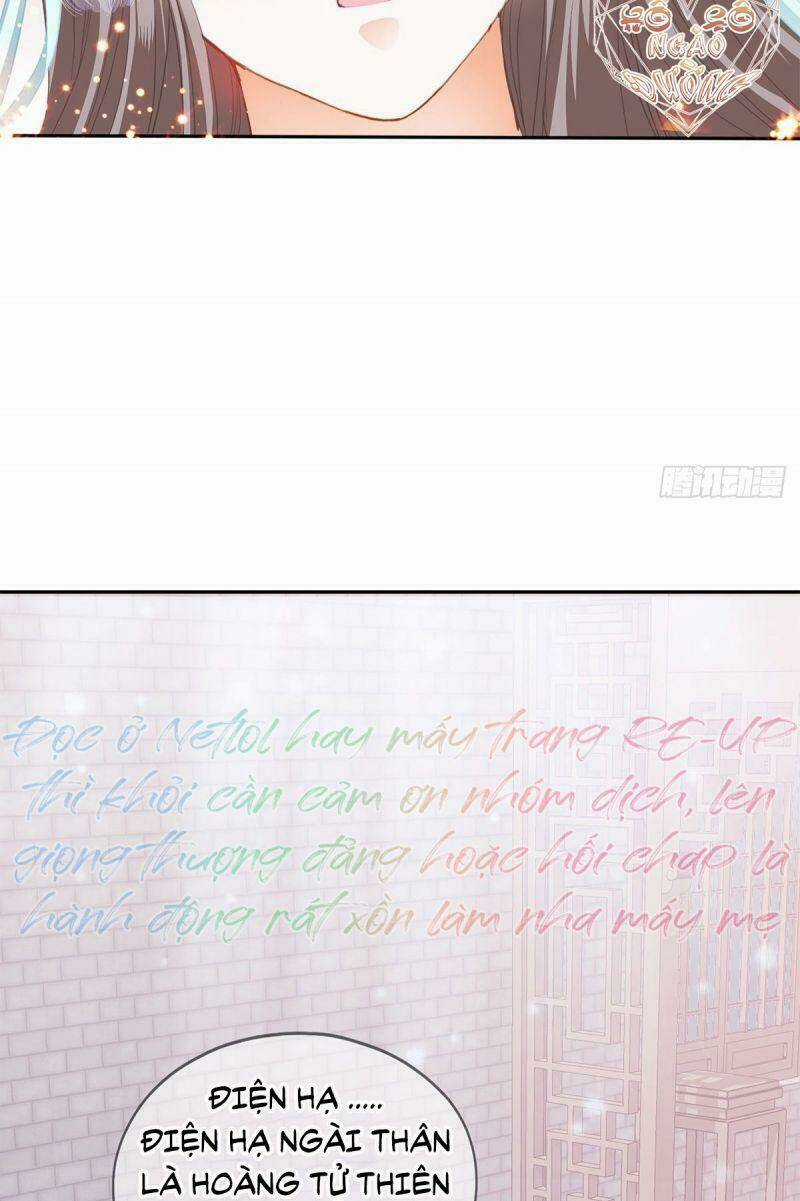 HỒ LÔ
NGÀO
ĐƯỜNG
腾讯动漫
Đọc ở Netlol hay mấy trang RE-UP
thì khỏi cần cảm ơn nhóm dịch, lên
giọng thượng đẳng hoặc hối chap là
hành động rất xồn làm nha mấy mẹ
ĐIỆN HẠ .....
ĐIỆN HẠ NGÀI THÂN
LÀ HOÀNG TỬ THIÊN